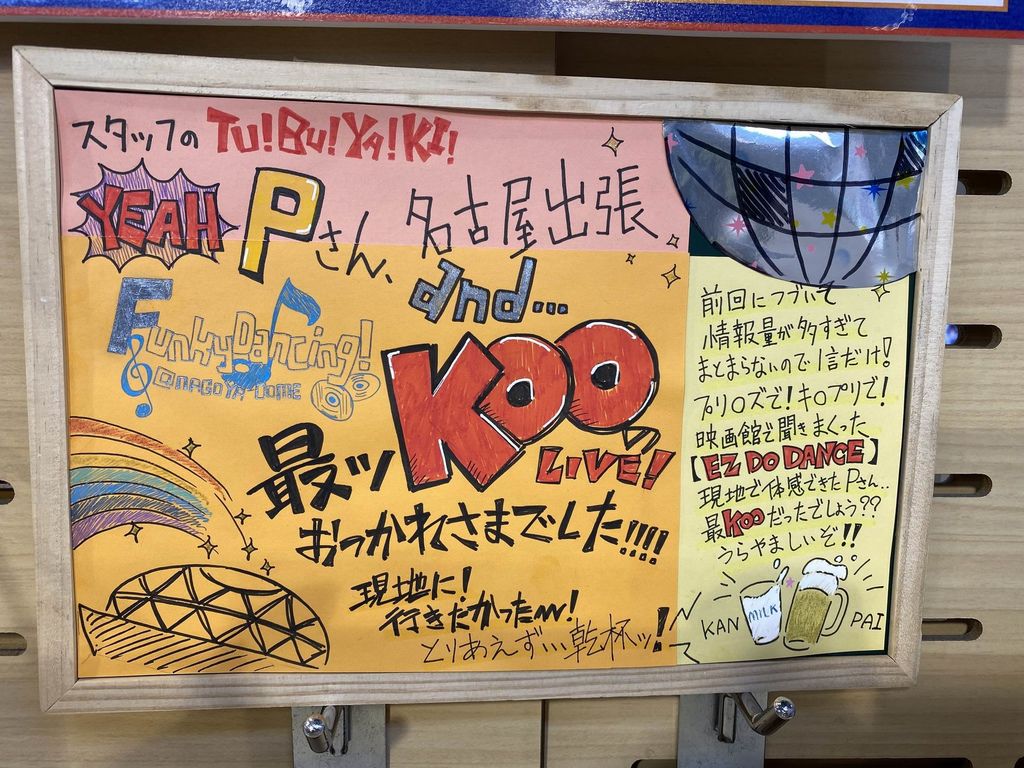 スタッフの TU!BU!YA!KI!
YEAH Pさん、名古屋出張
and...
Funky Dancing!
@NAGOYA-DOME
最ッKOO LIVE!
おつかれさまでした!!!!
現地に!
行きたかったᴎ!
とりあえず…乾杯ッ!
前回につづいて
情報量が多すぎて
まとまらないので1言だけ!
プリ○ズで!キ○プリで!
映画館で聞きまくった
【EZ DO DANCE】
現地で体感できたPさん..
最KOOだったでしょう??
うらやましいぞ!!
MILK
KAN PAI